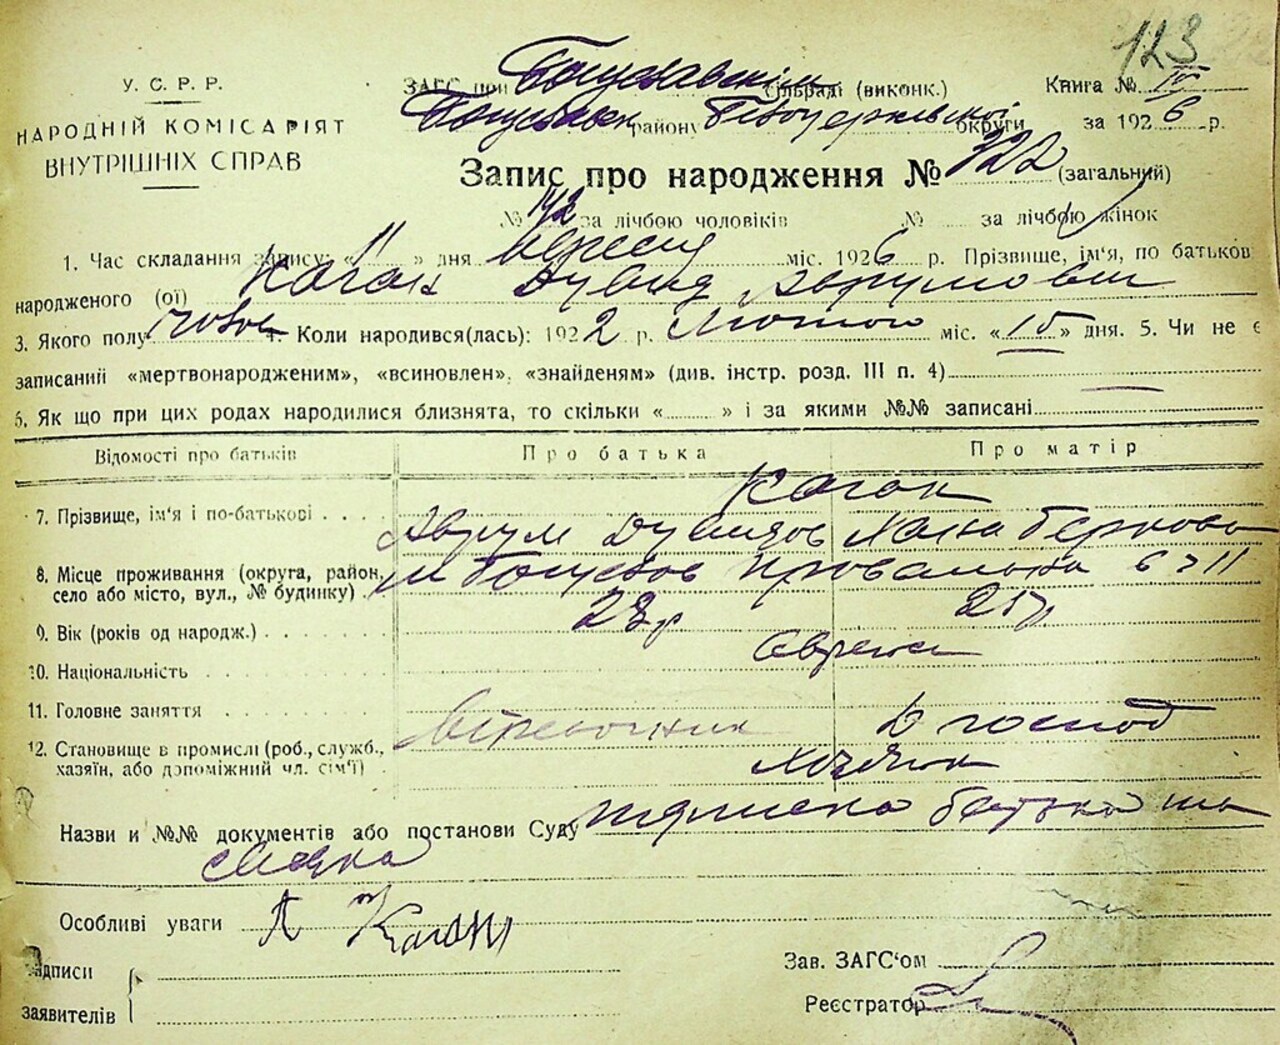 123
У.С.Р.Р.
НАРОДНІЙ КОМІСАРІЯТ
ВНУТРІШНІХ СПРАВ
ЗАГС при Богуславскім сільраді (виконк.) Книга № IV
Богуславск району Білоцерківської округи за 1926 р.
Запис про народження № 322 (загальний)
№ 142 за лічбою чоловіків № за лічбою жінок
1. Час складання запису: « 11 » дня вересня міс. 1926 р. Прізвище, ім'я, по батькові
народженого (ої) Каган Дувид Аврумович
3. Якого полу чолов 4. Коли народився(лась): 1922 р. Лютого міс. «15» дня. 5. Чи не є
записаний «мертвонародженим», «всиновлен», «знайденям» (див. інстр. розд. III п. 4)
6. Як що при цих родах народилися близнята, то скільки « » і за якими №№ записані
Відомості про батьків Про батька Про матір
Каган
7. Прізвище, ім'я і по-батькові Аврум Дувидов Хана Беркова
8. Місце проживання (округа, район, м Богуслав
село або місто, вул., № будинку)
9. Вік (років од народж.) 28 р 25 р
10. Національність Євреи
11. Головне заняття
12. Становище в промислі (роб., служб., В господ
хазяїн, або допоміжний чл. сім'ї) Хозяїн
Назви и №№ документів або постанови Суду підписка батька та
свідка
Особливі уваги А Каган
Підписи Зав. ЗАГС'ом
заявителів Реєстратор